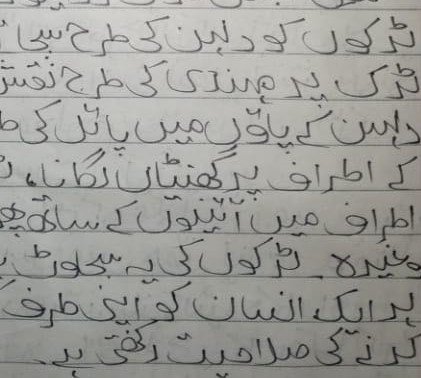 ٹرکوں کو دلہن کی طرح سجا
ٹرک پر مہندی کی طرح نقش
دلہن کے پاؤں میں پائل کی ط
کے اطراف پر گھنٹیاں لگانا،
اطراف میں آئینوں کے ساتھ پھو
وغیرہ۔ ٹرکوں کی یہ سجاوٹ
ہر ایک انسان کو اپنی طرف ک
کرنے کی صلاحیت رکھتی ہے۔